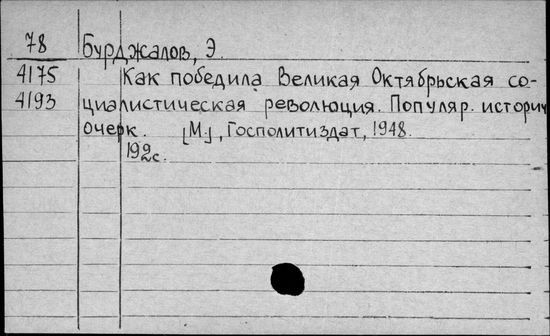 78 Бурджалов, Э.
4175 Как победила Великая Октябрьская со-
4193 циалистическая революция. Популяр. историч
очерк. [М.], Госполитиздат, 1948.
192с.